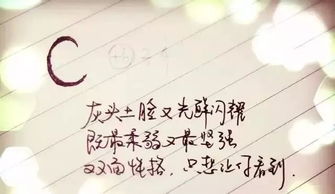 灰头土脸又光鲜闪耀
既最柔弱又最坚强
双面性格，只想让你看到.